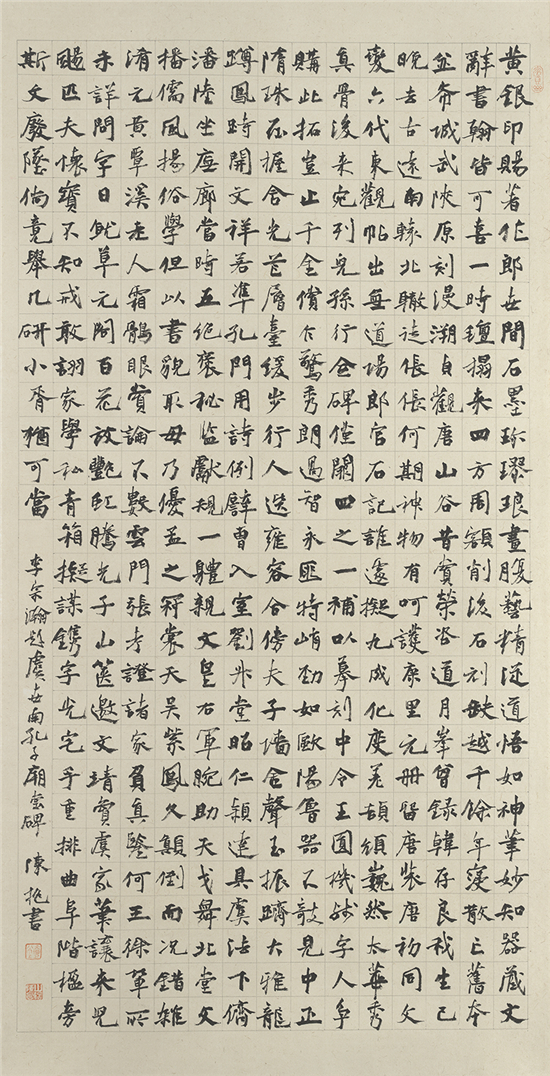 黃銀印賜著作郎世間石墨珎璆琅畫腴藝精從道悟如神筆妙知器藏文
辭書翰皆可喜一時氈搨來四方周額削後石刻缺越千餘年寖散亡舊本
並希城武陝原刻漫溯貞觀唐山谷昔賞榮咨道月峯曾錄韓存良我生已
晚去古遠南轅北轍徒倀倀何期神物有呵護康里元冊留唐裝唐初同文
變六代東觀帖出無道場郎官石記誰遽擬九成化度差頡頏巍然太華秀
真骨後來宛列兒孫行全碑僅闕四之一補以摹刻中令王圓機殘字人争
購此拓豈止千金償乍驚秀朗過智永匪特峭勁如歐陽魯器不攲見中正
隋珠在握含光芒層臺緩步行人迭雍容合傍夫子墻金聲玉振躋大雅龍
蹲鳳跱開文祥若準孔門用詩例薛曹入室劉升堂昭仁穎達具虞法下儕
潘陸坐廡廊當時五絕褒秘監獻規一體親文皇右軍腕助天戈舞北堂文
播儒風揚俗學但以書貌取毋乃優孟之冠裳天吳紫鳳久顛倒而况錯雜
淆元黄覃溪老人霜鶻眼賞論不數雲門張考證諸家負真鑒何王徐單所
未詳問字日就草元閣百花放艷虹騰光子山篋邀文靖賞虞家筆讓來兒
颺匹夫懷寶不知戒敢詡家學私青箱擬謀鐫字光宅乎重排曲阜階楹旁
斯文廢墜倘竟舉几研小胥猶可當
李宗瀚題虞世南孔子廟堂碑 陳抱書